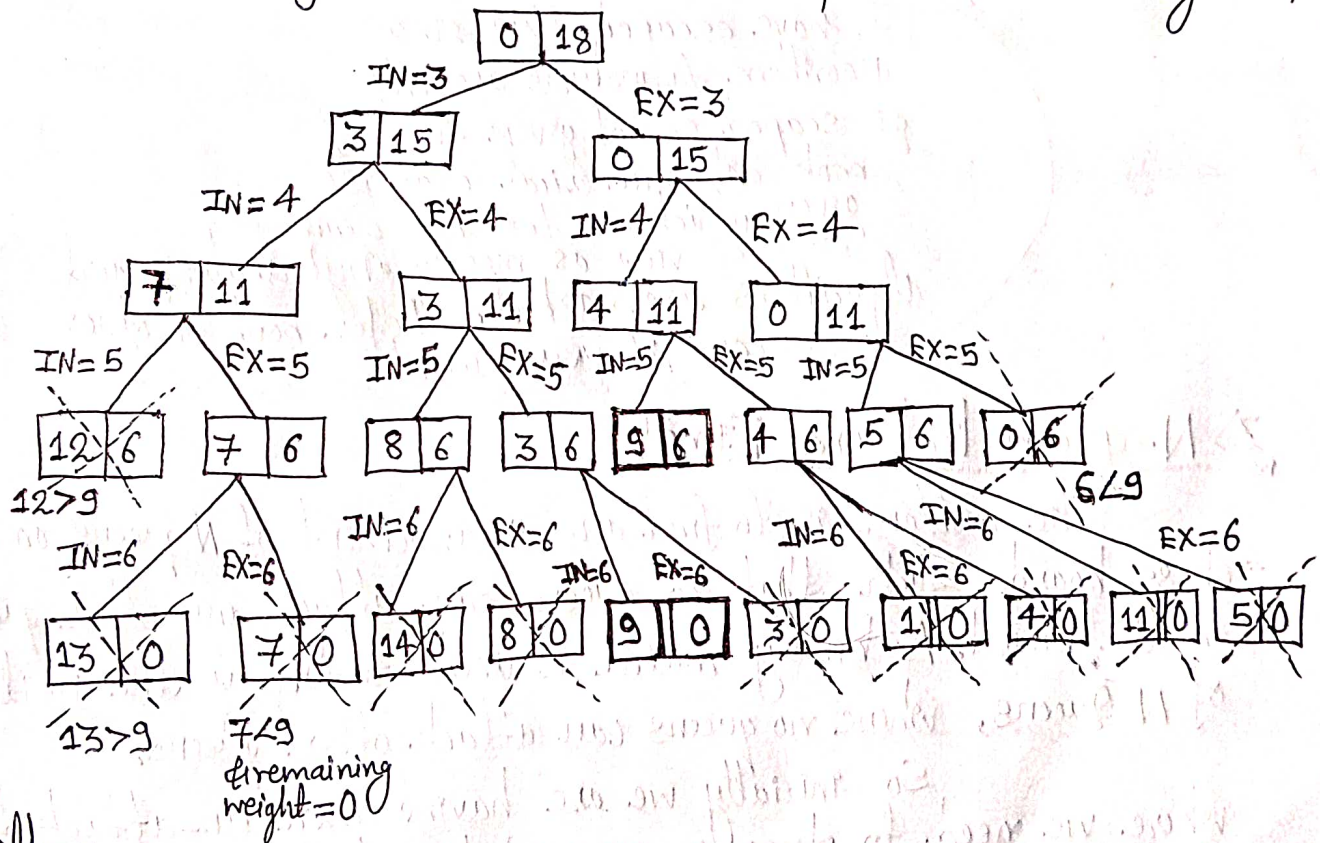 0 18
IN=3 EX=3
3 15 0 15
IN=4 EX=4 IN=4 EX=4
7 11 3 11 4 11 0 11
IN=5 EX=5 IN=5 EX=5 IN=5 EX=5 IN=5 EX=5
12 6 7 6 8 6 3 6 9 6 4 6 5 6 0 6
12>9 6<9
IN=6 EX=6 IN=6 EX=6 IN=6 EX=6 IN=6 EX=6 IN=6 EX=6
13 0 7 0 14 0 8 0 9 0 3 0 1 0 4 0 11 0 5 0
13>9 7<9
& remaining
weight=0